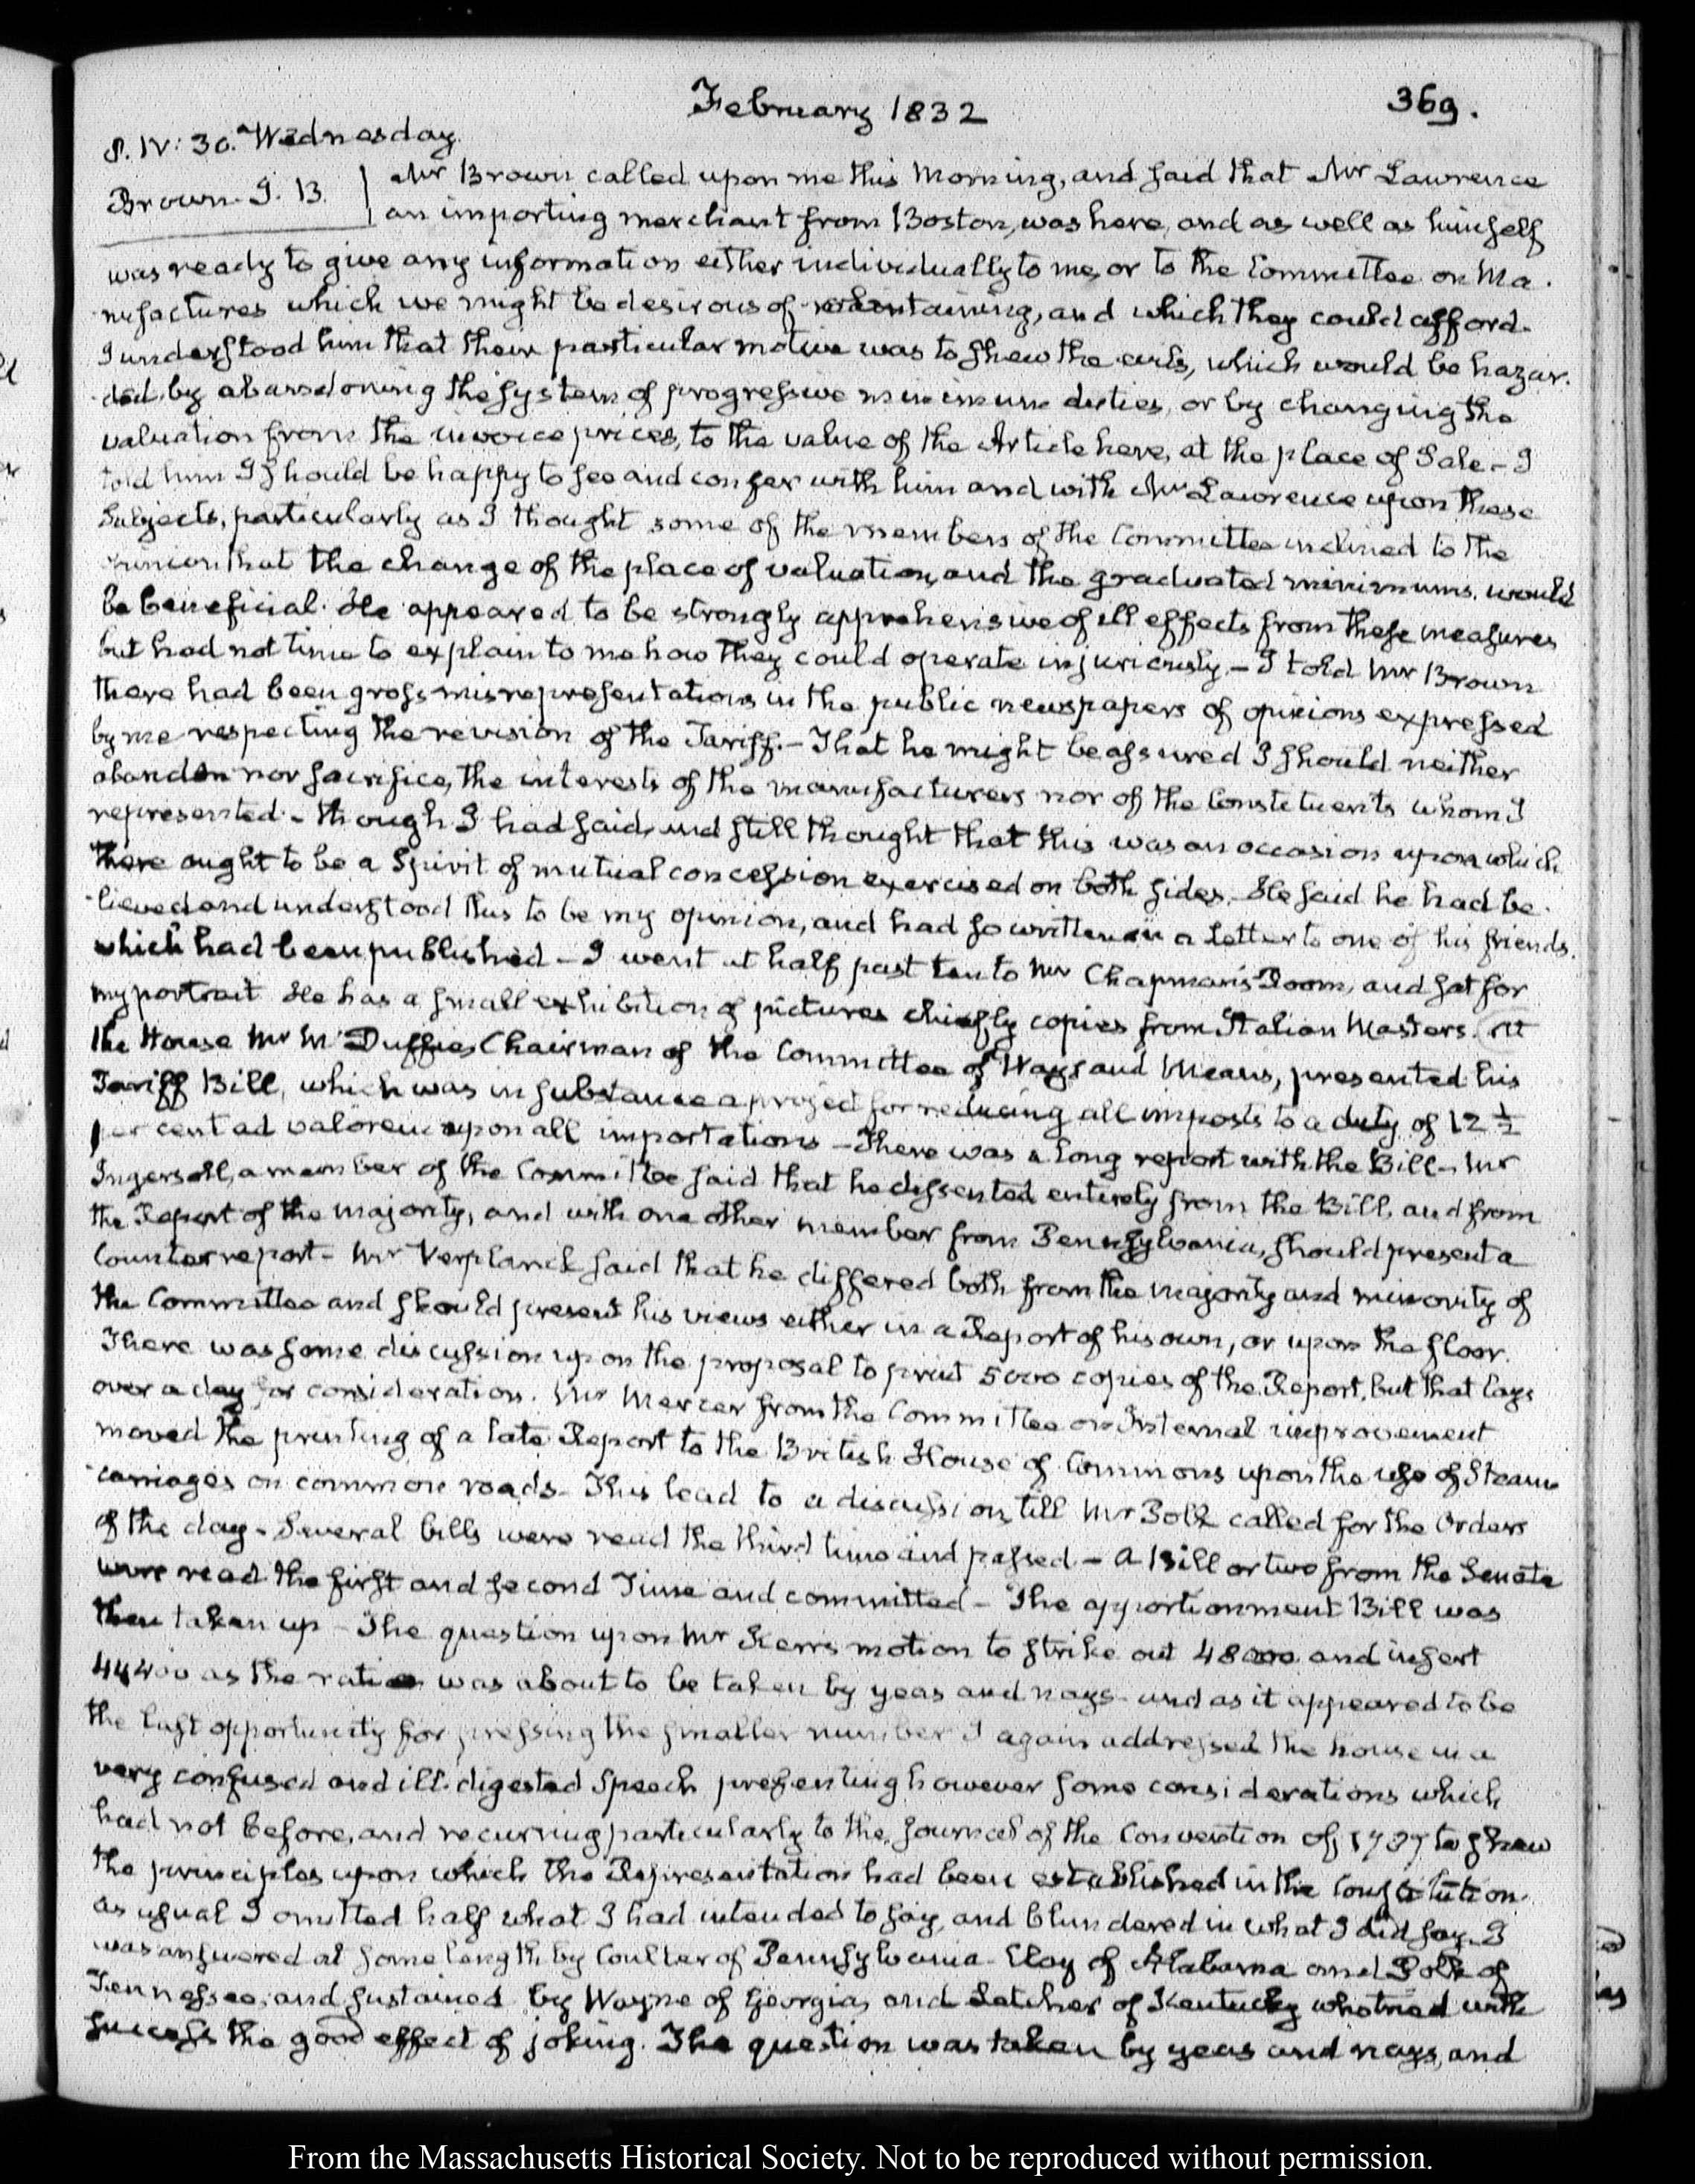 February 1832
369.
8. IV: 30. Wednesday.
Brown. J. B.
Mr Brown called upon me this Morning, and said that Mr Lawrence
an importing merchant from Boston, was here, and as well as himself
was ready to give any information either individually to me, or to the Committee on Ma-
nufactures which we might be desirous of obtaining, and which they could afford.
I understood him that their particular motive was to shew the evils, which would be hazar-
ded, by abandoning the system of progressive minimum duties, or by changing the
valuation from the invoice prices, to the value of the Article here, at the place of Sale - I
told him I should be happy to see and confer with him and with Mr Lawrence upon these
Subjects, particularly as I thought some of the members of the Committee inclined to the
opinion that the change of the place of valuation, and the graduated minimums, would
be beneficial. He appeared to be strongly apprehensive of ill effects from these measures
but had not time to explain to me how they could operate injuriously. - I told Mr Brown
there had been gross misrepresentations in the public newspapers of opinions expressed
by me respecting the revision of the Tariff. - That he might be assured I should neither
abandon nor sacrifice, the interests of the manufacturers nor of the Constituents whom I
represented - though I had said, and still thought that this was an occasion upon which
there ought to be a Spirit of mutual concession exercised on both sides. He said he had be-
lieved and understood this to be my opinion, and had so written in a letter to one of his friends,
which had been published - I went at half past ten to Mr Chapman's Room, and sat for
my portrait. He has a small exhibition of pictures chiefly copies from Italian Masters. At
the House Mr McDuffie, Chairman of the Committee of Ways and Means, presented his
Tariff Bill, which was in substance a project for reducing all imposts to a duty of 12 1/2
per cent ad valorem upon all importations - There was a long report with the Bill - Mr
Ingersoll, a member of the Committee said that he dissented entirely from the Bill, and from
the Report of the majority, and with one other member from Pennsylvania, should present a
Counter report - Mr Verplanck said that he differed both from the majority and minority of
the Committee and should present his views either in a Report of his own, or upon the floor.
There was some discussion upon the proposal to print 5000 copies of the Report, but that lays
over a day for consideration. Mr Mercer from the Committee on Internal improvement
moved the printing of a late Report to the British House of Commons upon the use of Steam
carriages on common roads - This lead to a discussion, till Mr Polk called for the Orders
of the day - Several bills were read the third time and passed - A Bill or two from the Senate
were read the first and second Time and committed - The apportionment Bill was
then taken up - The question upon Mr Kerr's motion to strike out 48000 and insert
44400 as the ratio was about to be taken by yeas and nays - and as it appeared to be
the last opportunity for pressing the smaller number I again addressed the house in a
very confused and ill-digested Speech presenting however some considerations which
had not before, and recurring particularly to the Journal of the Convention of 1787 to shew
the principles upon which the Representation had been established in the Constitution.
as usual I omitted half what I had intended to say, and blundered in what I did say. I
was answered at some length by Coulter of Pennsylvania - Clay of Alabama and Polk of
Tennessee, and sustained by Wayne of Georgia, and Letcher of Kentucky who tried with
success the good effect of joking. The question was taken by yeas and nays, and
From the Massachusetts Historical Society. Not to be reproduced without permission.